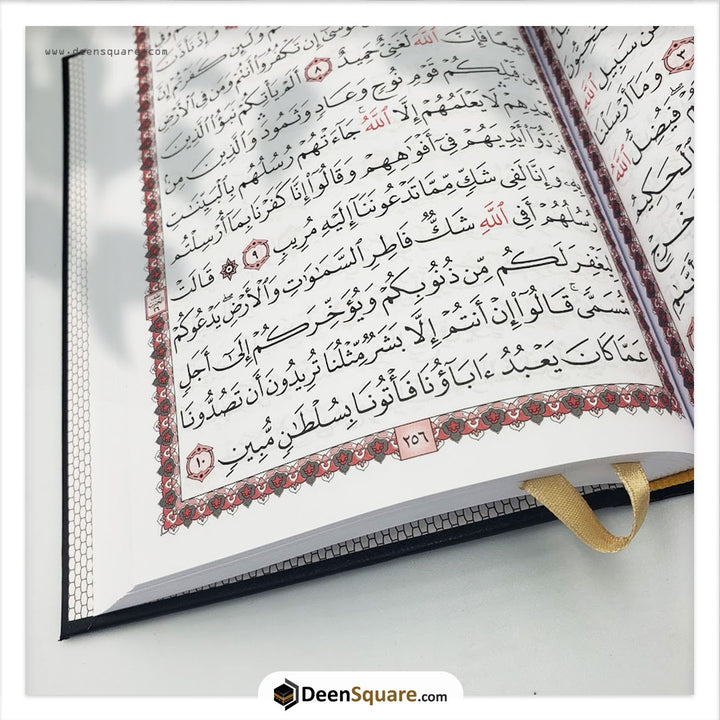 www.deensquare.com
وَلَئِن كَفَرْتُمْ إِنَّ
مُوسَىٰٓ إِن تَكْفُرُوٓا۟ أَنتُمْ وَمَن فِى ٱلْأَرْضِ
فَإِنَّ ٱللَّهَ لَغَنِىٌّ حَمِيدٌ ٨ أَلَمْ يَأْتِكُمْ نَبَؤُا۟ ٱلَّذِينَ
قَبْلِكُمْ قَوْمِ نُوحٍ وَعَادٍ وَثَمُودَ وَٱلَّذِينَ مِنۢ
لَا يَعْلَمُهُمْ إِلَّا ٱللَّهُ جَآءَتْهُمْ رُسُلُهُم بِٱلْبَيِّنَٰتِ
فَرَدُّوٓا۟ أَيْدِيَهُمْ فِىٓ أَفْوَٰهِهِمْ وَقَالُوٓا۟ إِنَّا كَفَرْنَا بِمَآ أُرْسِلْتُم
بِهِۦ وَإِنَّا لَفِى شَكٍّ مِّمَّا تَدْعُونَنَآ إِلَيْهِ مُرِيبٍ ٩ ۞ قَالَتْ
رُسُلُهُمْ أَفِى ٱللَّهِ شَكٌّ فَاطِرِ ٱلسَّمَٰوَٰتِ وَٱلْأَرْضِ ۖ يَدْعُوكُمْ
لِيَغْفِرَ لَكُم مِّن ذُنُوبِكُمْ وَيُؤَخِّرَكُمْ إِلَىٰٓ أَجَلٍ
مُّسَمًّى ۚ قَالُوٓا۟ إِنْ أَنتُمْ إِلَّا بَشَرٌ مِّثْلُنَا تُرِيدُونَ أَن تَصُدُّونَا
عَمَّا كَانَ يَعْبُدُ ءَابَآؤُنَا فَأْتُونَا بِسُلْطَٰنٍ مُّبِينٍ ١٠
٢٥٦
عَن سَبِيلِ ٱللَّهِ
٣ وَمَآ أَرْسَلْنَا
فَيُضِلُّ ٱللَّهُ
ٱلْحَكِيمُ
DeenSquare.com